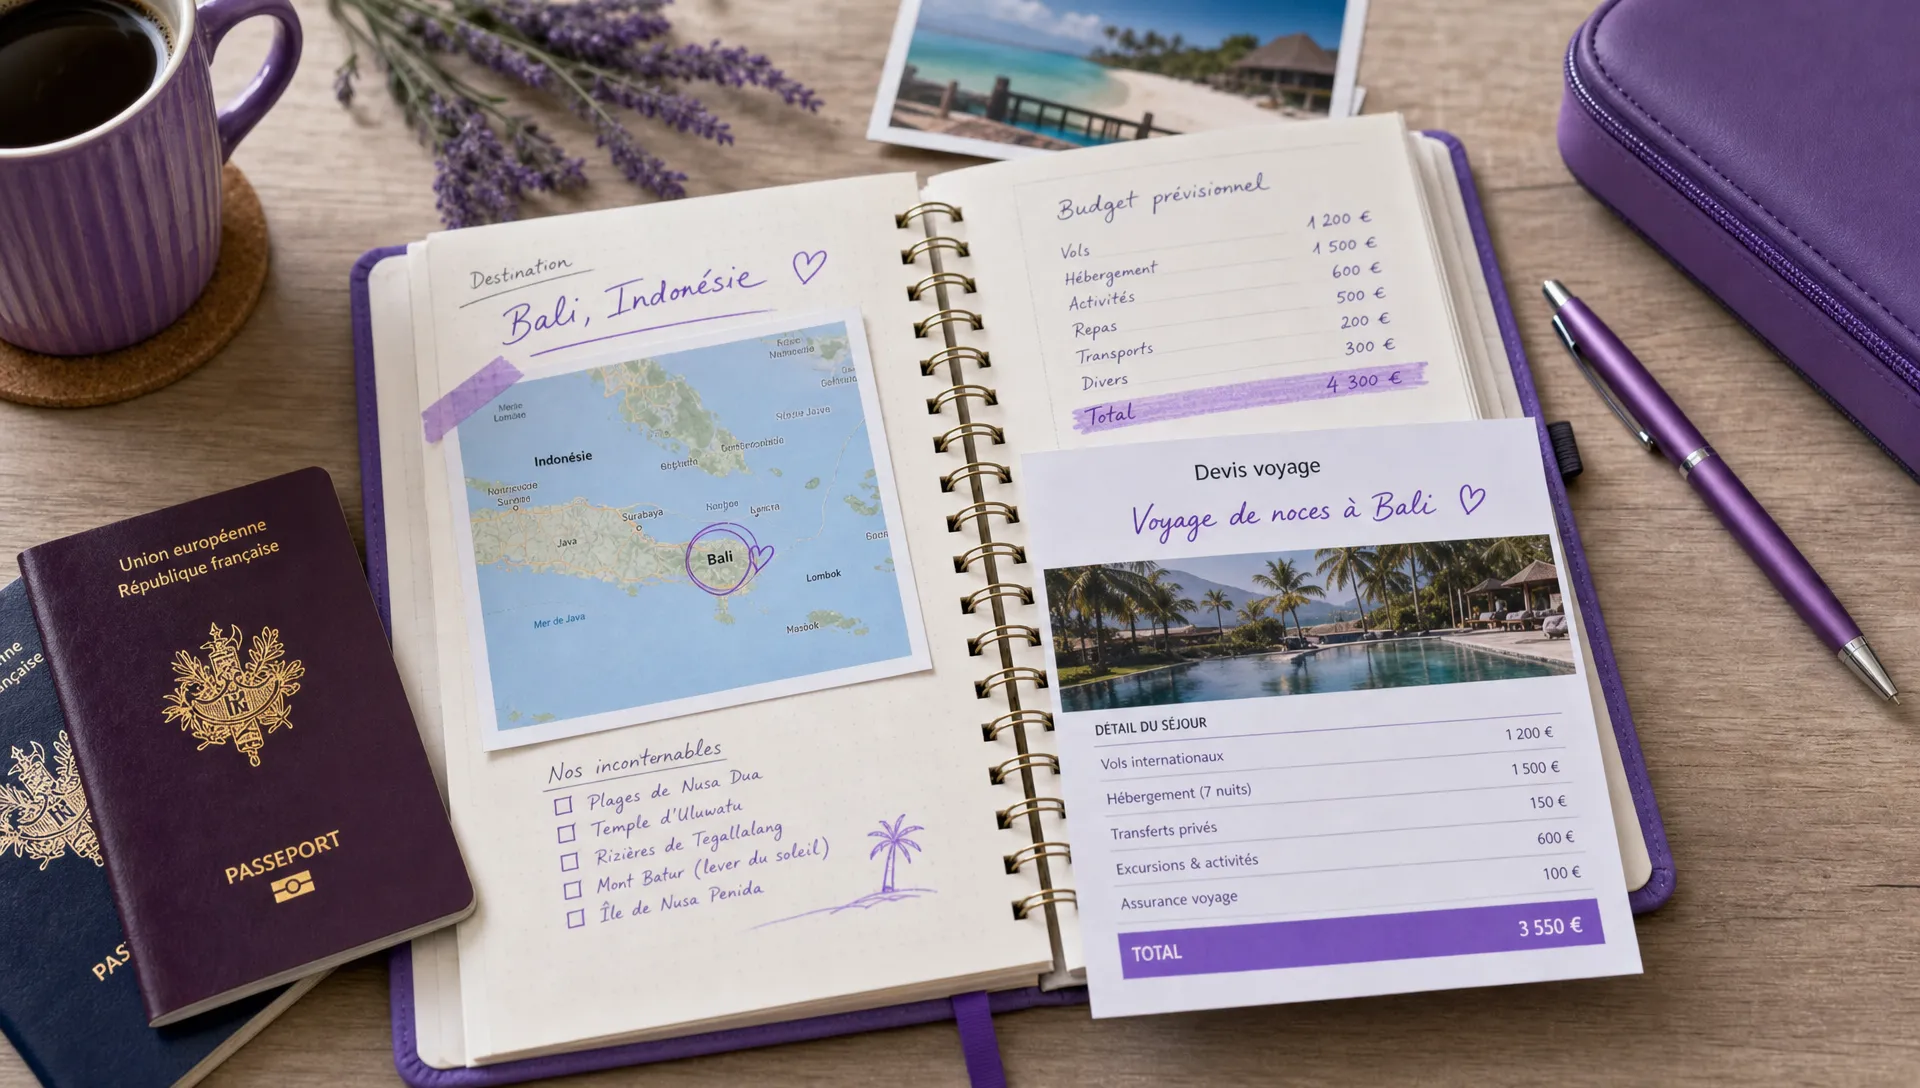 Destination
Bali, Indonésie
Indonésie
Surabaya
Java
Bali
Lombok
Mer de Java
Nos inconternables
Plages de Nusa Dua
Temple d'Uluwatu
Rizières de Tegallalang
Mont Batur (lever du soleil)
Île de Nusa Penida
Budget prévisionnel
Vols 1 200 €
Hébergement 1 500 €
Activités 600 €
Repas 500 €
Transports 200 €
Divers 300 €
Total 4 300 €
Devis voyage
Voyage de noces à Bali
DÉTAIL DU SÉJOUR
Vols internationaux 1 200 €
Hébergement (7 nuits) 1 500 €
Transferts privés 150 €
Excursions & activités 600 €
Assurance voyage 100 €
TOTAL 3 550 €
Union européenne
République française
PASSEPORT
nne
nçaise
PAS